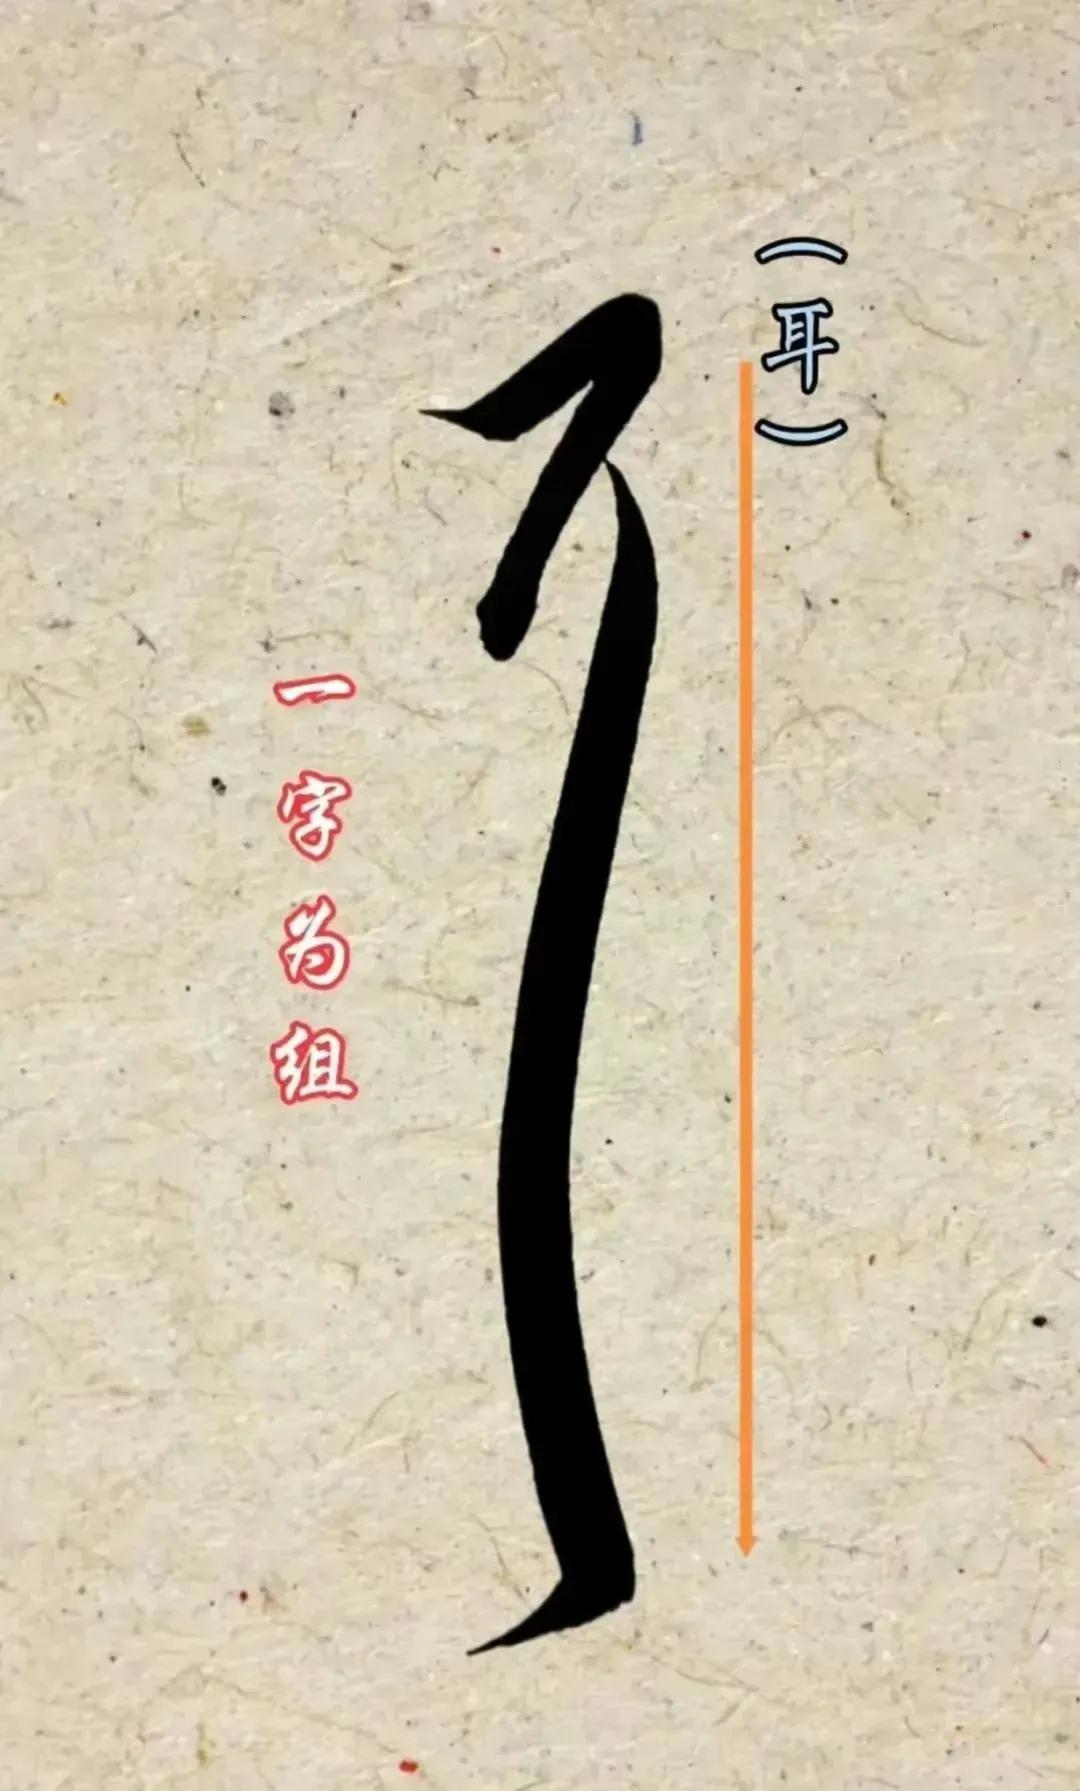 （耳）
耳
一字为组